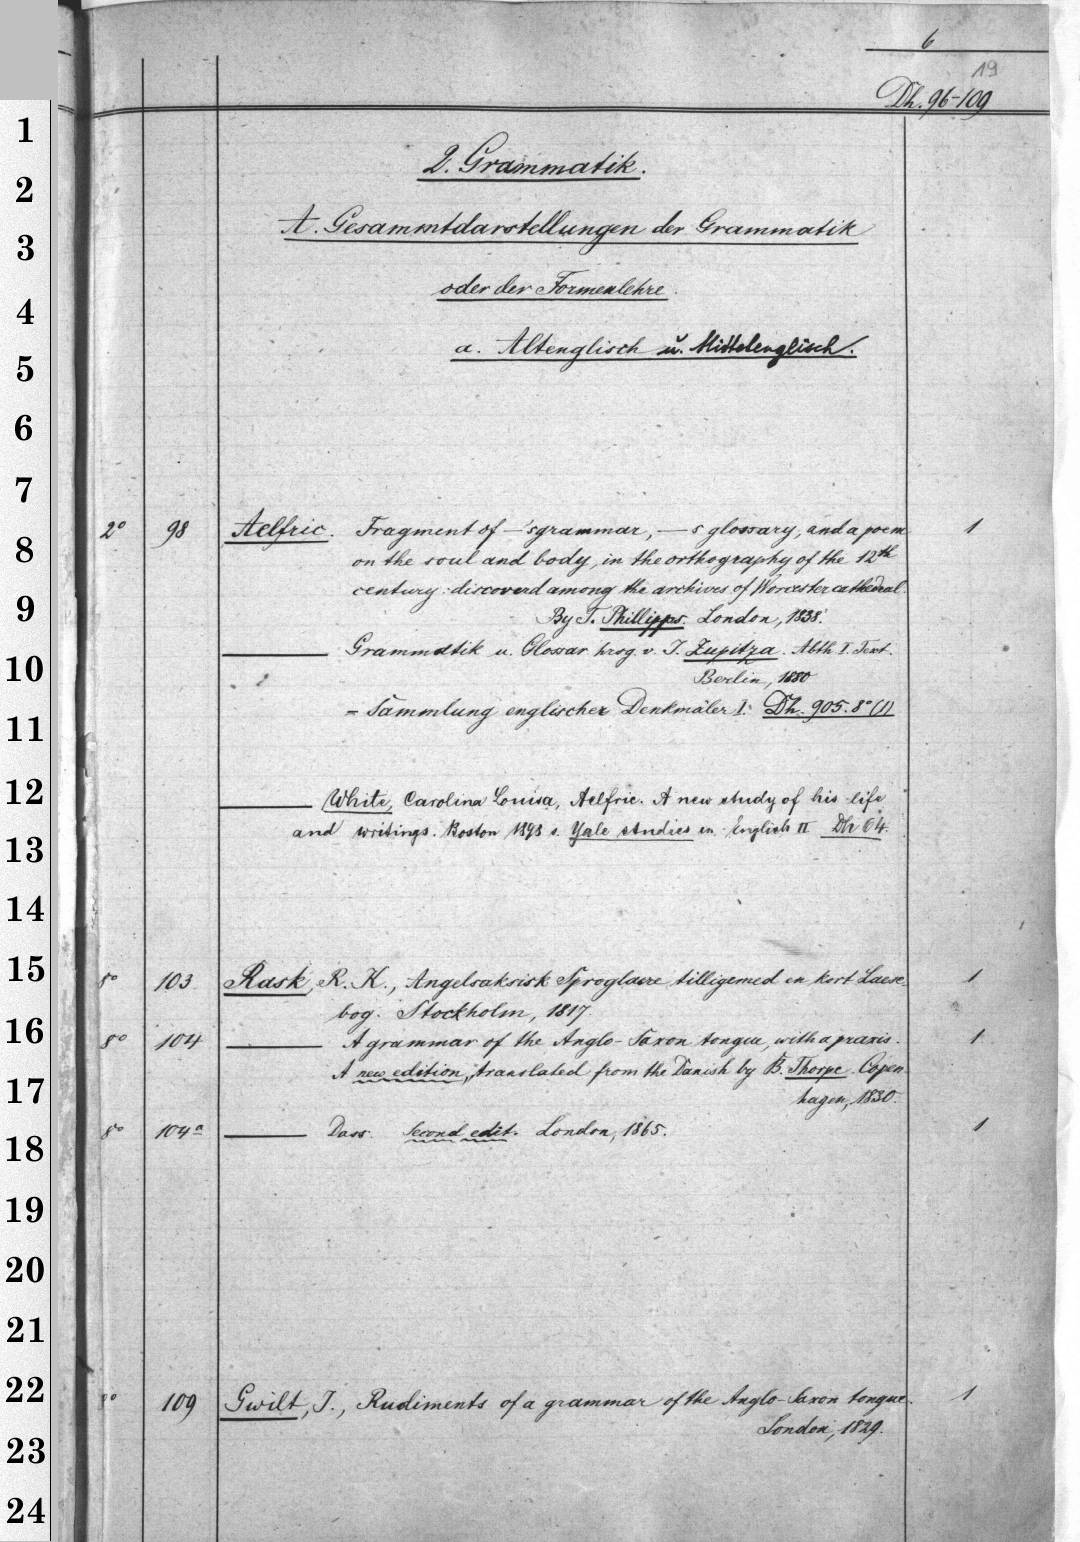 6
19
Dh. 96-109
2. Grammatik.
A. Gesammtdarstellungen der Grammatik
oder der Formenlehre.
a. Altenglisch u. Mittelenglisch.
2° 98 Aelfric. Fragment of —'sgrammar, — s glossary, and a poem 1
on the soul and body, in the orthography of the 12th
century: discoverd among the archives of Worcester cathedral.
By T. Phillipps. London, 1838.
——— Grammatik u. Glossar hrsg. v. J. Zupitza. Abth I. Text.
Berlin, 1880
= Sammlung englischer Denkmäler I. Dh. 905. 8° (1)
——— White, Carolina Louisa, Aelfric. A new study of his life
and writings. Boston 1898 s. Yale studies in English II Dh 64.
8° 103 Rask, R. K., Angelsaksisk Sproglaere tilligemed en kort Laese- 1
bog. Stockholm, 1817.
8° 104 ——— A grammar of the Anglo-Saxon tongue, with a praxis. 1
A new edition, translated from the Danish by B. Thorpe. Copen-
hagen, 1830.
8° 104a ——— Dass. Second edit. London, 1865. 1
8° 109 Gwilt, J., Rudiments of a grammar of the Anglo-Saxon tongue. 1
London, 1829.
1
2
3
4
5
6
7
8
9
10
11
12
13
14
15
16
17
18
19
20
21
22
23
24